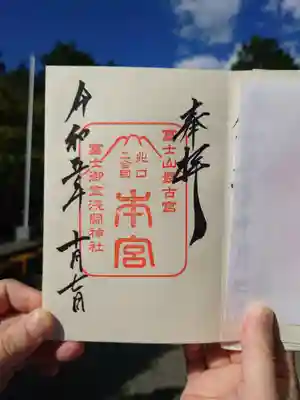 奉拝
冨士山最古宮
北口
二合目
本宮
冨士御室浅間神社
令和五年 十月七日